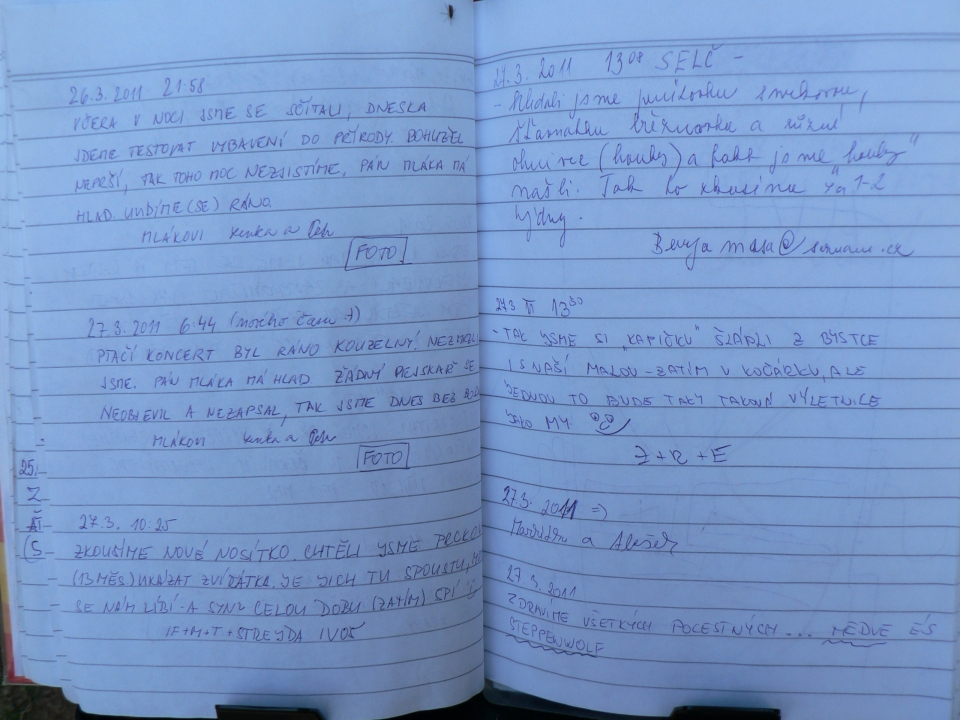 26.3. 2011 21:58
VČERA V NOCI JSME SE SČÍTALI, DNESKA
JDEME TESTOVAT VYBAVENÍ DO PŘÍRODY. BOHUŽEL
NEPRŠÍ, TAK TOHO MOC NEZJISTÍME. PÁN MLÁKA MÁ
HLAD. UVIDÍME (SE) RÁNO
MLÁKOVI Lenka a Petr
FOTO
27.3. 2011 6:44 (nového času :)
PTAČÍ KONCERT BYL RÁNO KOUZELNÝ, NEZMRZLI
JSME. PÁN MLÁKA MÁ HLAD ŽÁDNÝ PEJSKAŘ SE
NEOBJEVIL A NEZAPSAL, TAK JSME DNES BEZ
MLÁKOVI Lenka a Petr
FOTO
25.
Z
(S
27.3. 10:25
ZKOUŠÍME NOVÉ NOSÍTKO. CHTĚLI JSME
(13 MĚS) UKÁZAT ZVÍŘÁTKA. JE JICH TU SPOUSTU,
SE NÁM LÍBÍ - A SYN CELOU DOBU (ZATÍM) SPÍ
IF+M+T+STREJDA IVOŠ
27.3. 2011 13 08 SELČ -
- Hledali jsme
březnovku a různé
ohnivce (houby) a fakt jsme "houby"
našli. Tak to zkusíme za 1-2
týdny.
27.3 13 30
- TAK JSME SI "KAPIČKU" ŠLÁPLI Z BYSTCE
I S NAŠÍ MALOU - ZATÍM V KOČÁRKU, ALE
JEDNOU TO BUDE TAKY TAKOVÁ VÝLETNICE
JAKO MY.
Z + R + E
27.3. 2011 =>
a
27.3.2011
ZDRAVÍME VŠETKÝCH POCESTNÝCH ... MEDVE ĚS
STEPPENWOLF